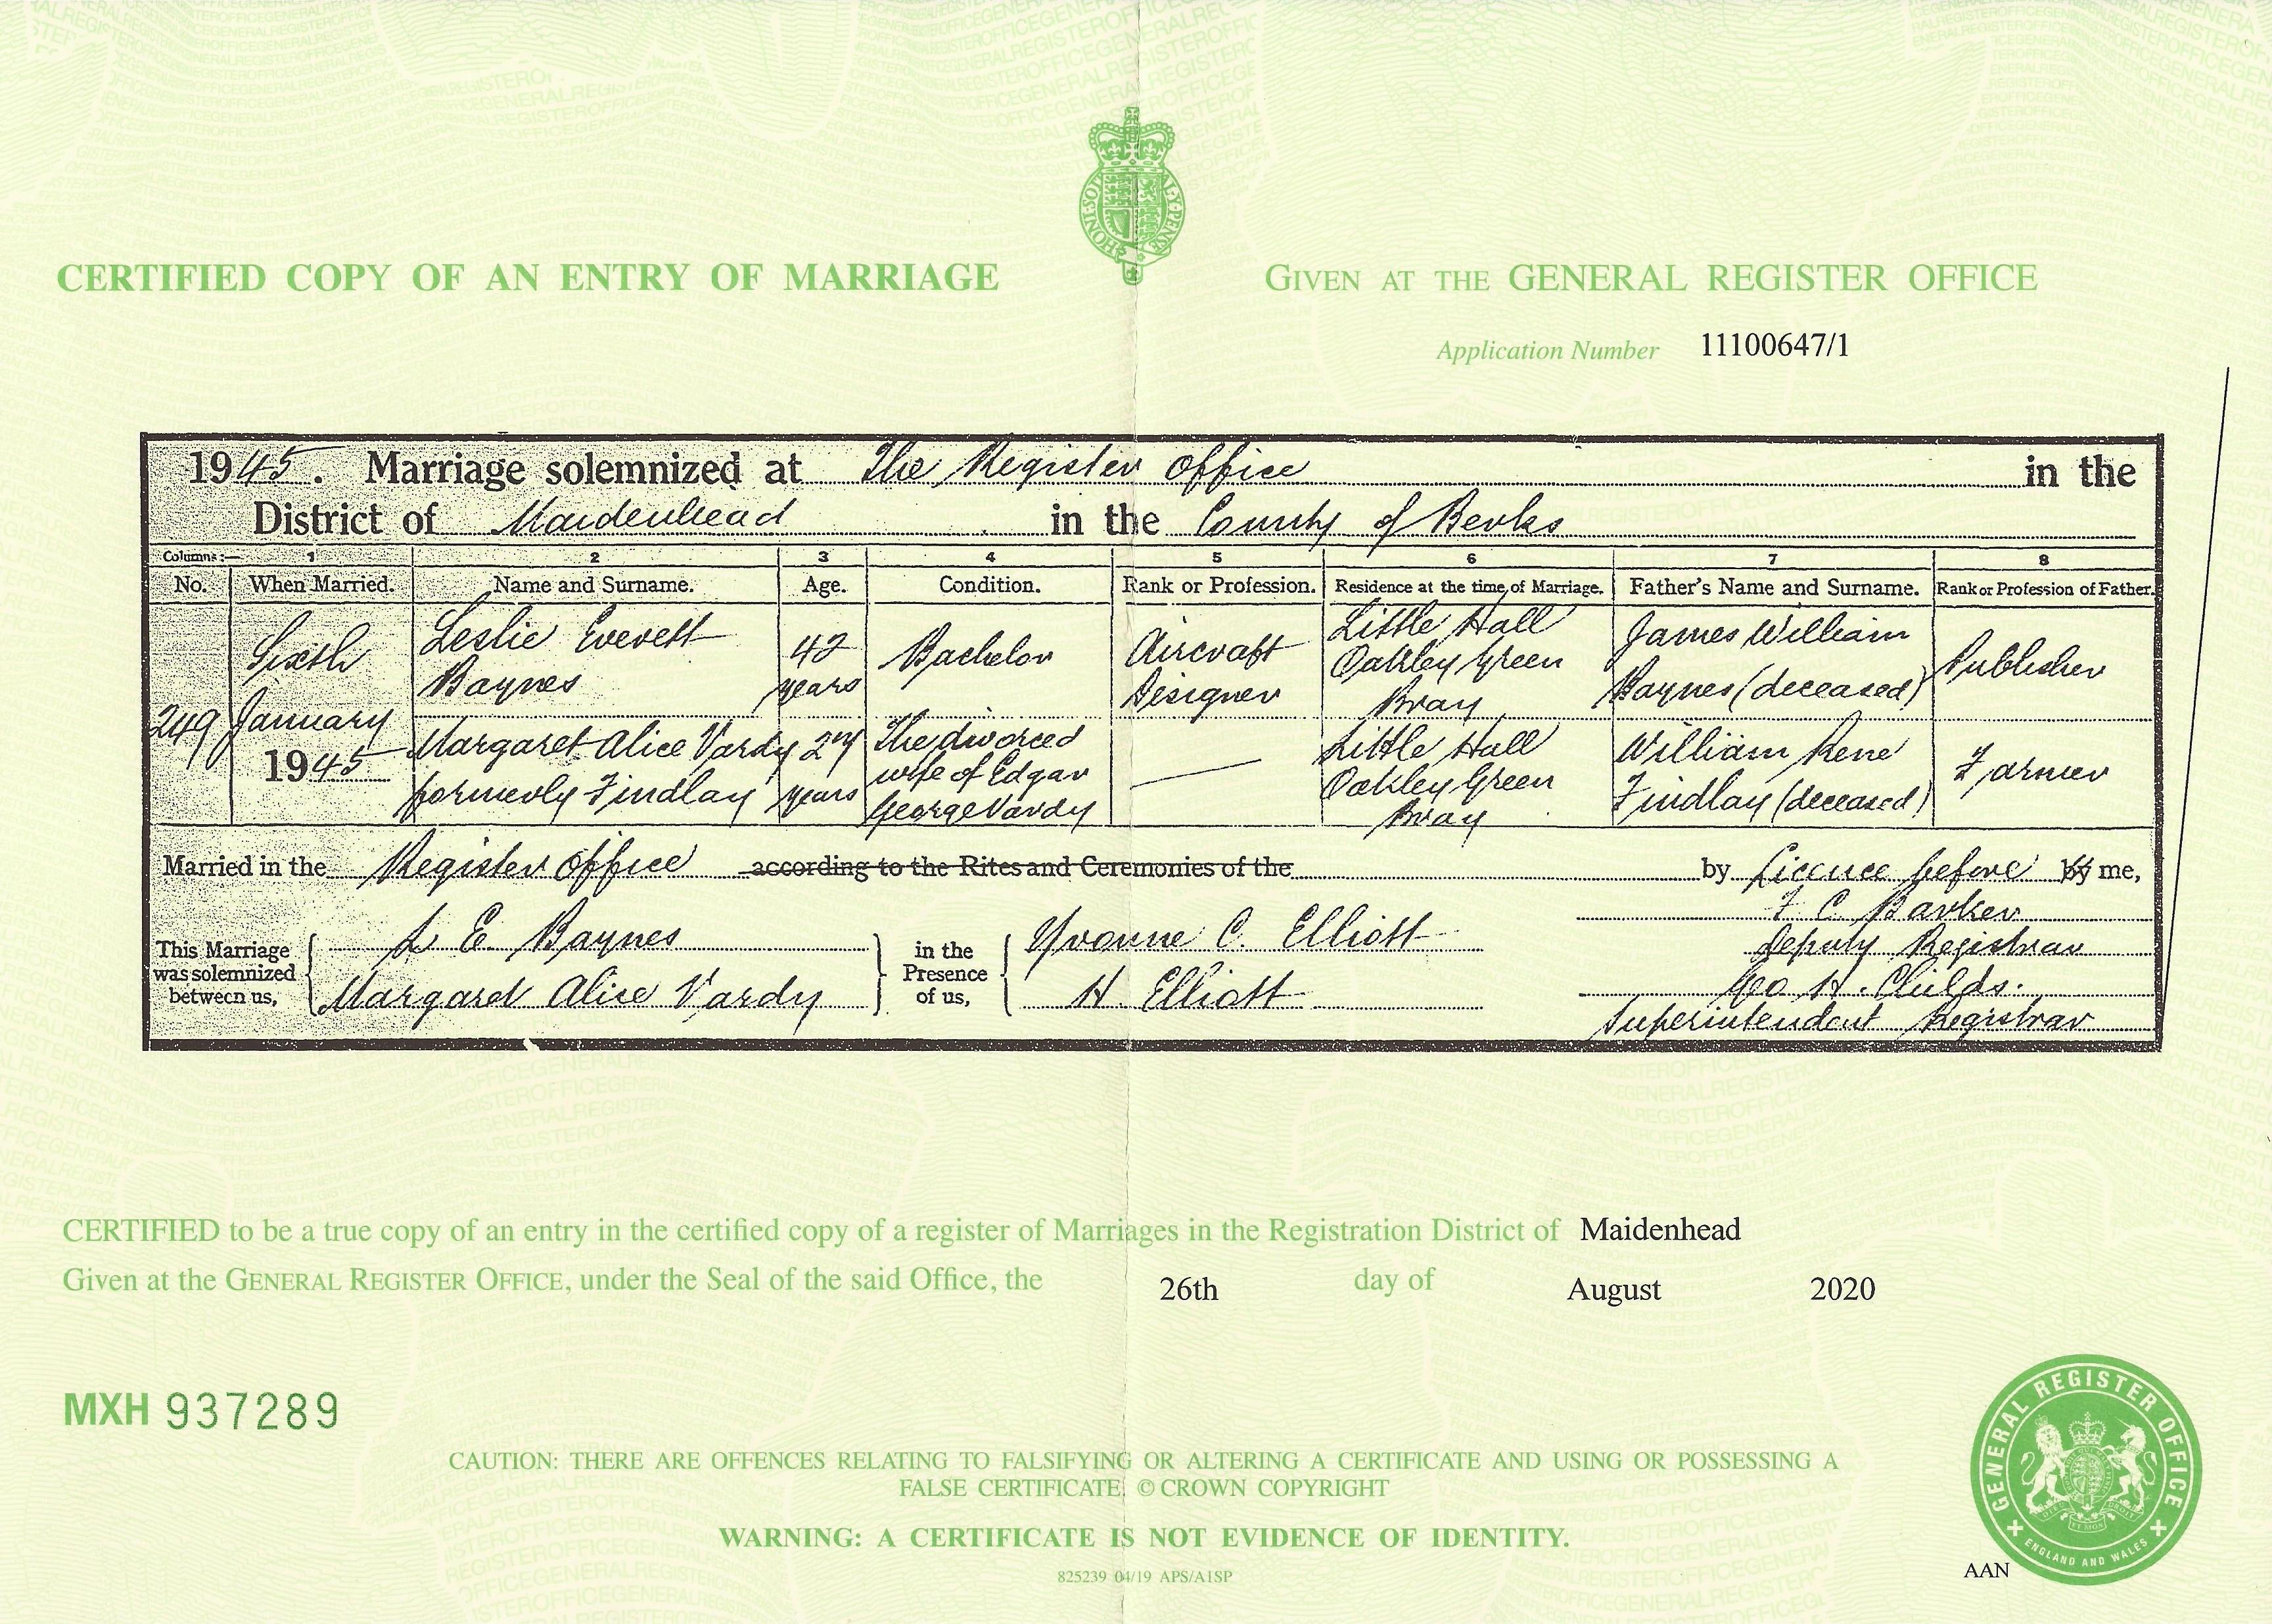 CERTIFIED COPY OF AN ENTRY OF MARRIAGE
GIVEN AT THE GENERAL REGISTER OFFICE
Application Number 11100647/1
1945. Marriage solemnized at The Register Office in the
District of Maidenhead in the County of Berks
Columns:— 1 2 3 4 5 6 7 8
No. When Married. Name and Surname. Age. Condition. Rank or Profession. Residence at the time of Marriage. Father's Name and Surname. Rank or Profession of Father.
249
Sixth
January
1945
Leslie Everett
Baynes
42
years
Bachelor
Aircraft
Designer
Little Hall
Oakley Green
Bray
James William
Baynes (deceased)
Publisher
Margaret Alice Vardy
formerly Findlay
years
The divorced
wife of Edgar
George Vardy
Little Hall
Oakley Green
Bray
William Rene
Findlay (deceased)
Farmer
Married in the Register Office according to the Rites and Ceremonies of the by Licence before by me,
This Marriage
was solemnized
between us,
L E. Baynes
Margaret Alice Vardy
in the
Presence
of us,
Yvonne C. Elliott
H. Elliott
F C. Barker
Deputy Registrar
Geo H. Childs.
Superintendent Registrar
CERTIFIED to be a true copy of an entry in the certified copy of a register of Marriages in the Registration District of Maidenhead
Given at the GENERAL REGISTER OFFICE, under the Seal of the said Office, the 26th day of August 2020
MXH 937289
CAUTION: THERE ARE OFFENCES RELATING TO FALSIFYING OR ALTERING A CERTIFICATE AND USING OR POSSESSING A
FALSE CERTIFICATE. © CROWN COPYRIGHT
WARNING: A CERTIFICATE IS NOT EVIDENCE OF IDENTITY.
825239 04/19 APS/A1SP
AAN
GENERAL REGISTER OFFICE
ENGLAND AND WALES